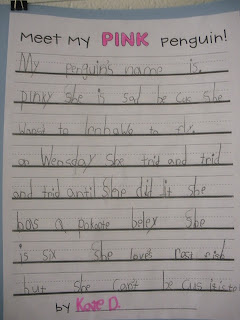 Meet My PINK Penguin!
My penguin's name is.
pinky She is sad be cus She
to fly.
on Wensday She trid and trid
and trid antil She did it She
has a beley She
is six She loves fish
but She Can't be cus
by Kate D.